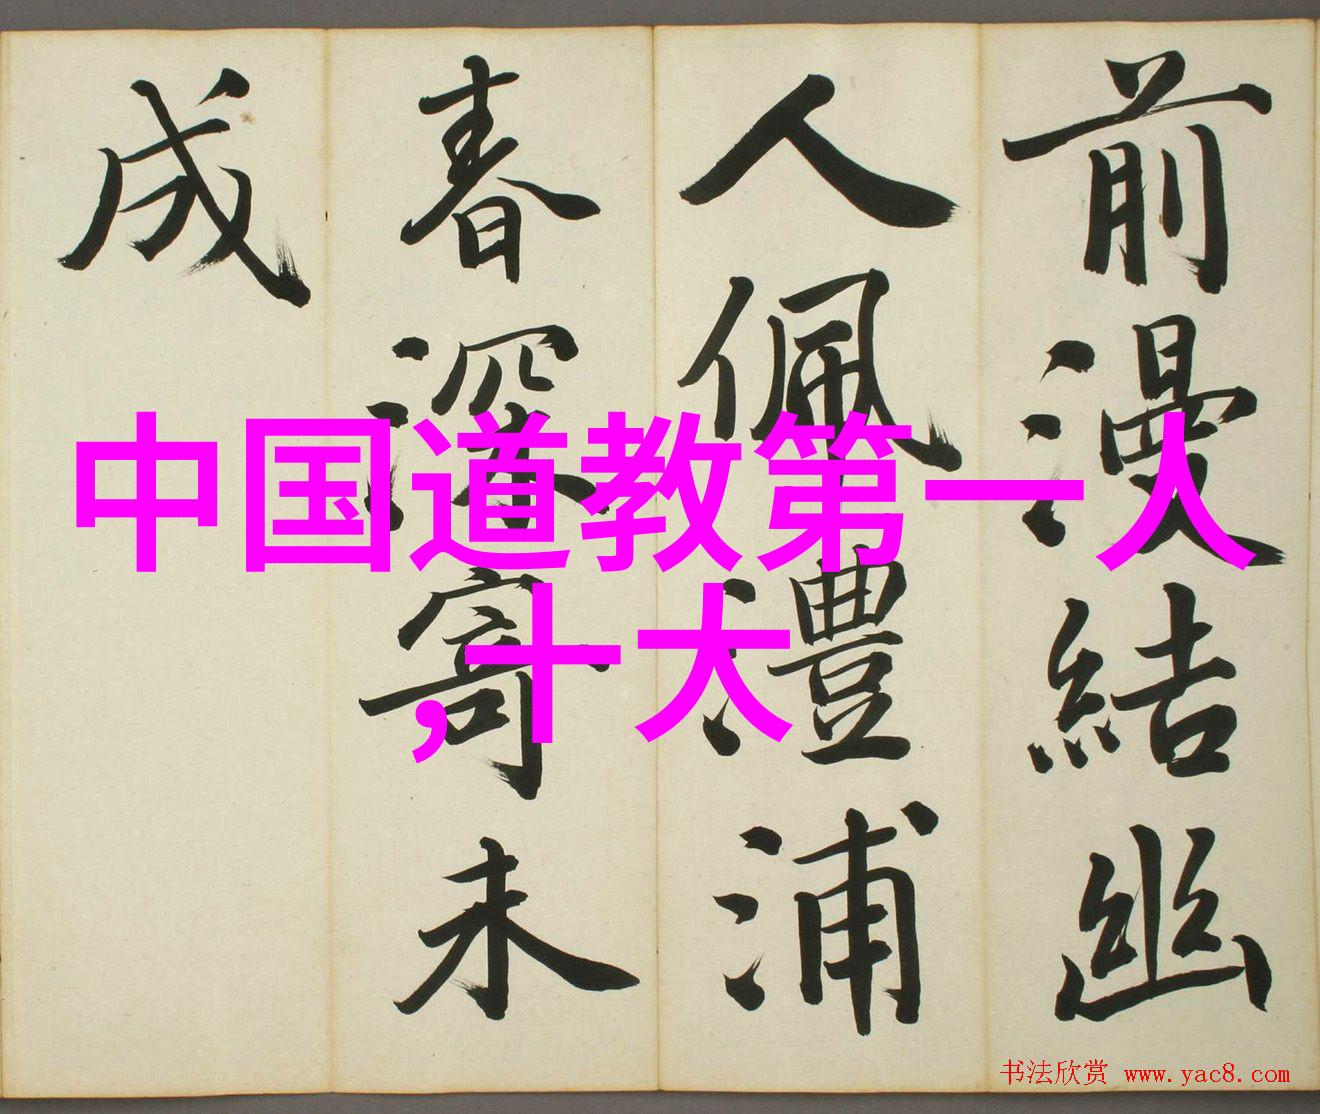 前漫結幽
人佩澧浦
春深寄未
成
中国道教第一人
,十大
书法欣赏 www.yac8.com